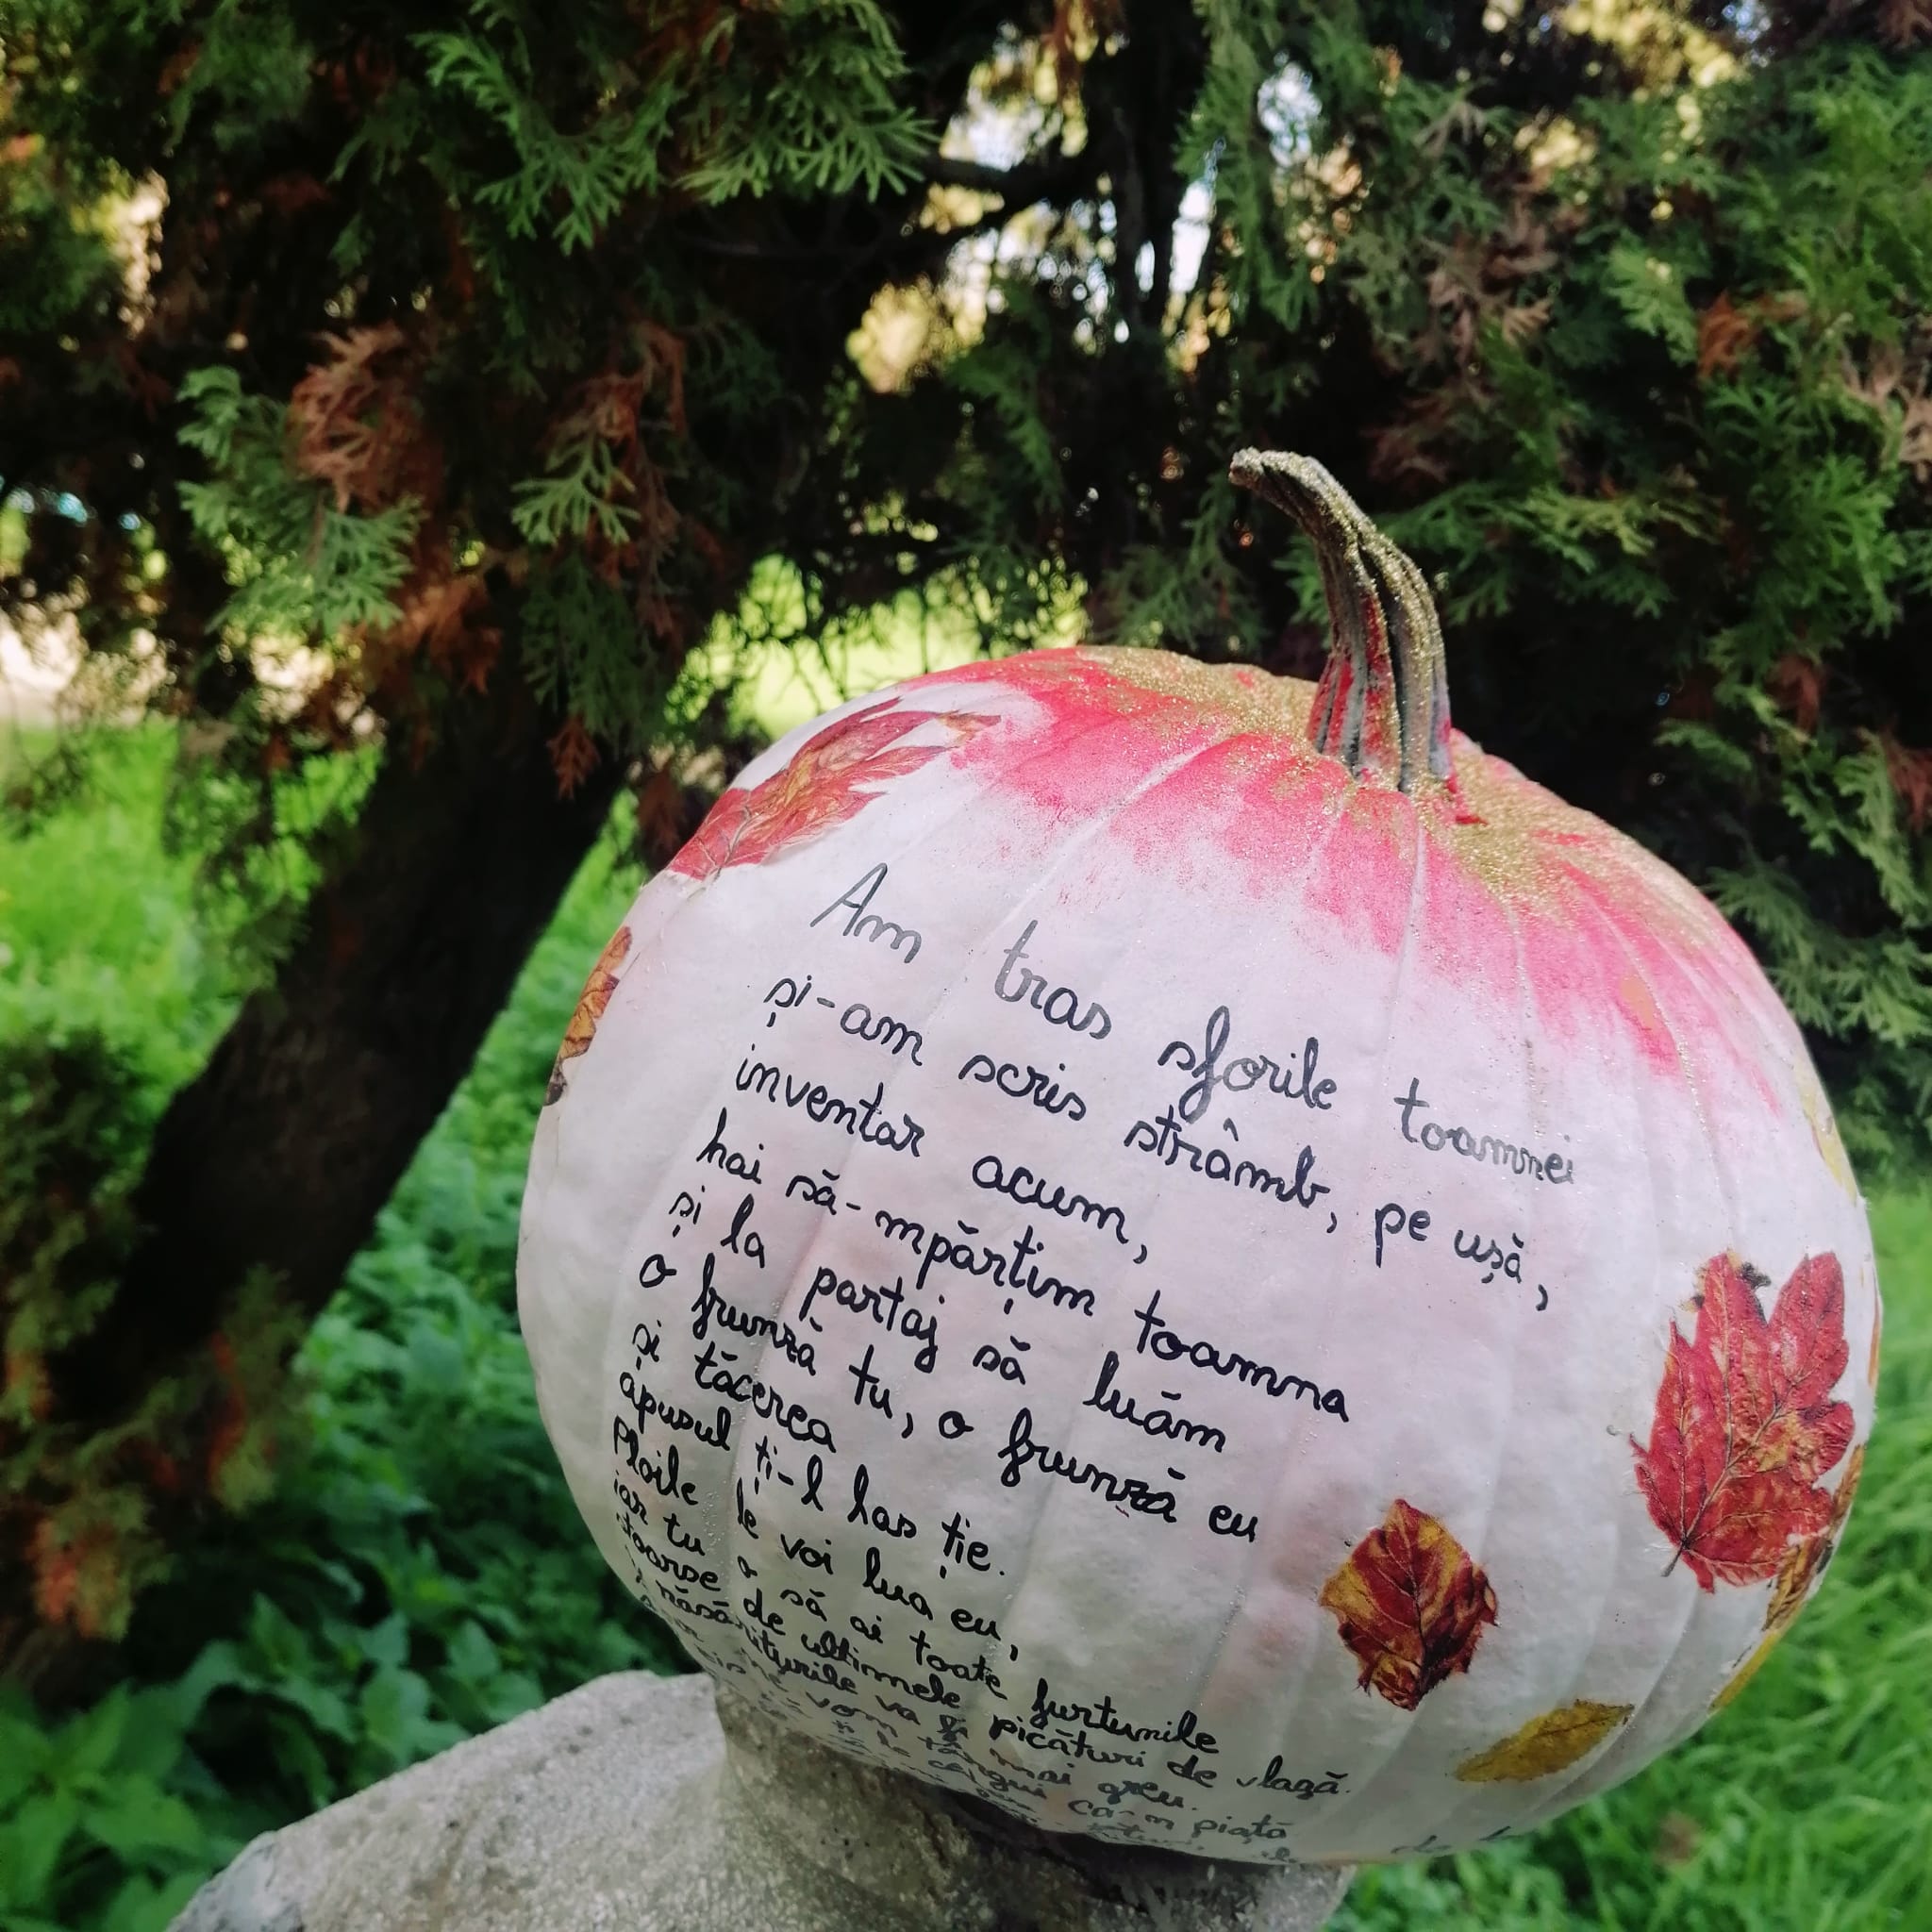 Am tras sforile toamnei
și-am scris strâmb, pe ușă,
inventar acum,
hai să-mpărțim toamna
și la partaj să luăm
o frunză tu, o frunză eu
și tăcerea
apusul ți-l las ție.
Ploile le voi lua eu,
iar tu o să ai toate furtunile
toarse de ultimele picături de vlagă.
răsăriturile va fi mai greu.
ne vom târgui ca-n piață